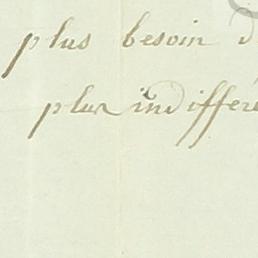 plus besoin d
plus indiffére